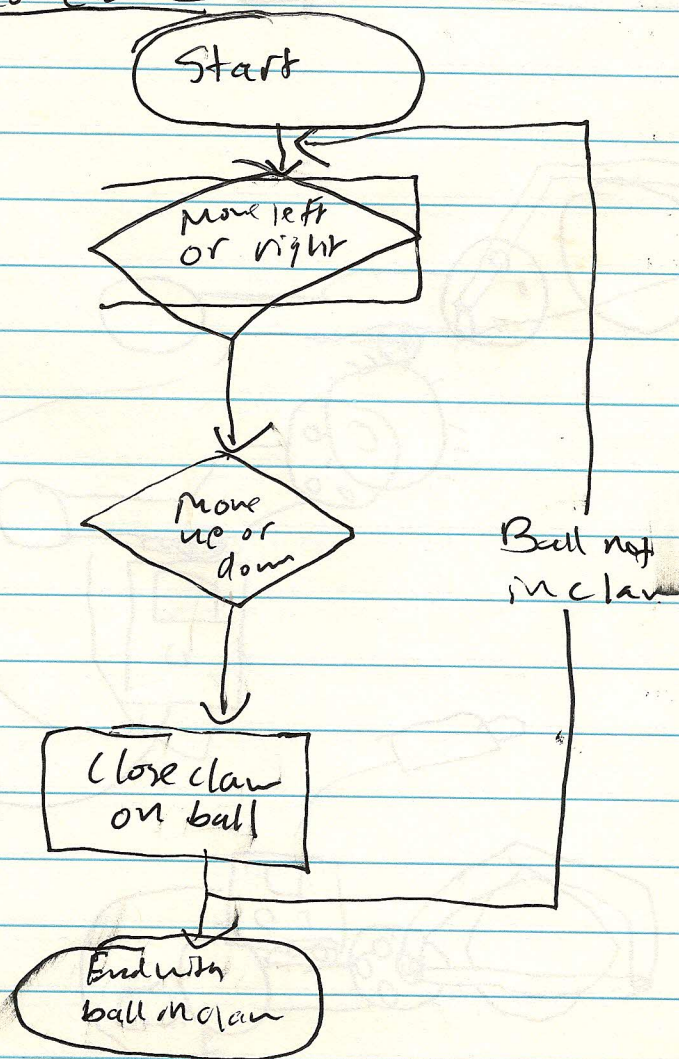 Start
Move left
or right
Move
up or
down
Ball not
in claw
Close claw
on ball
End with
ball in claw